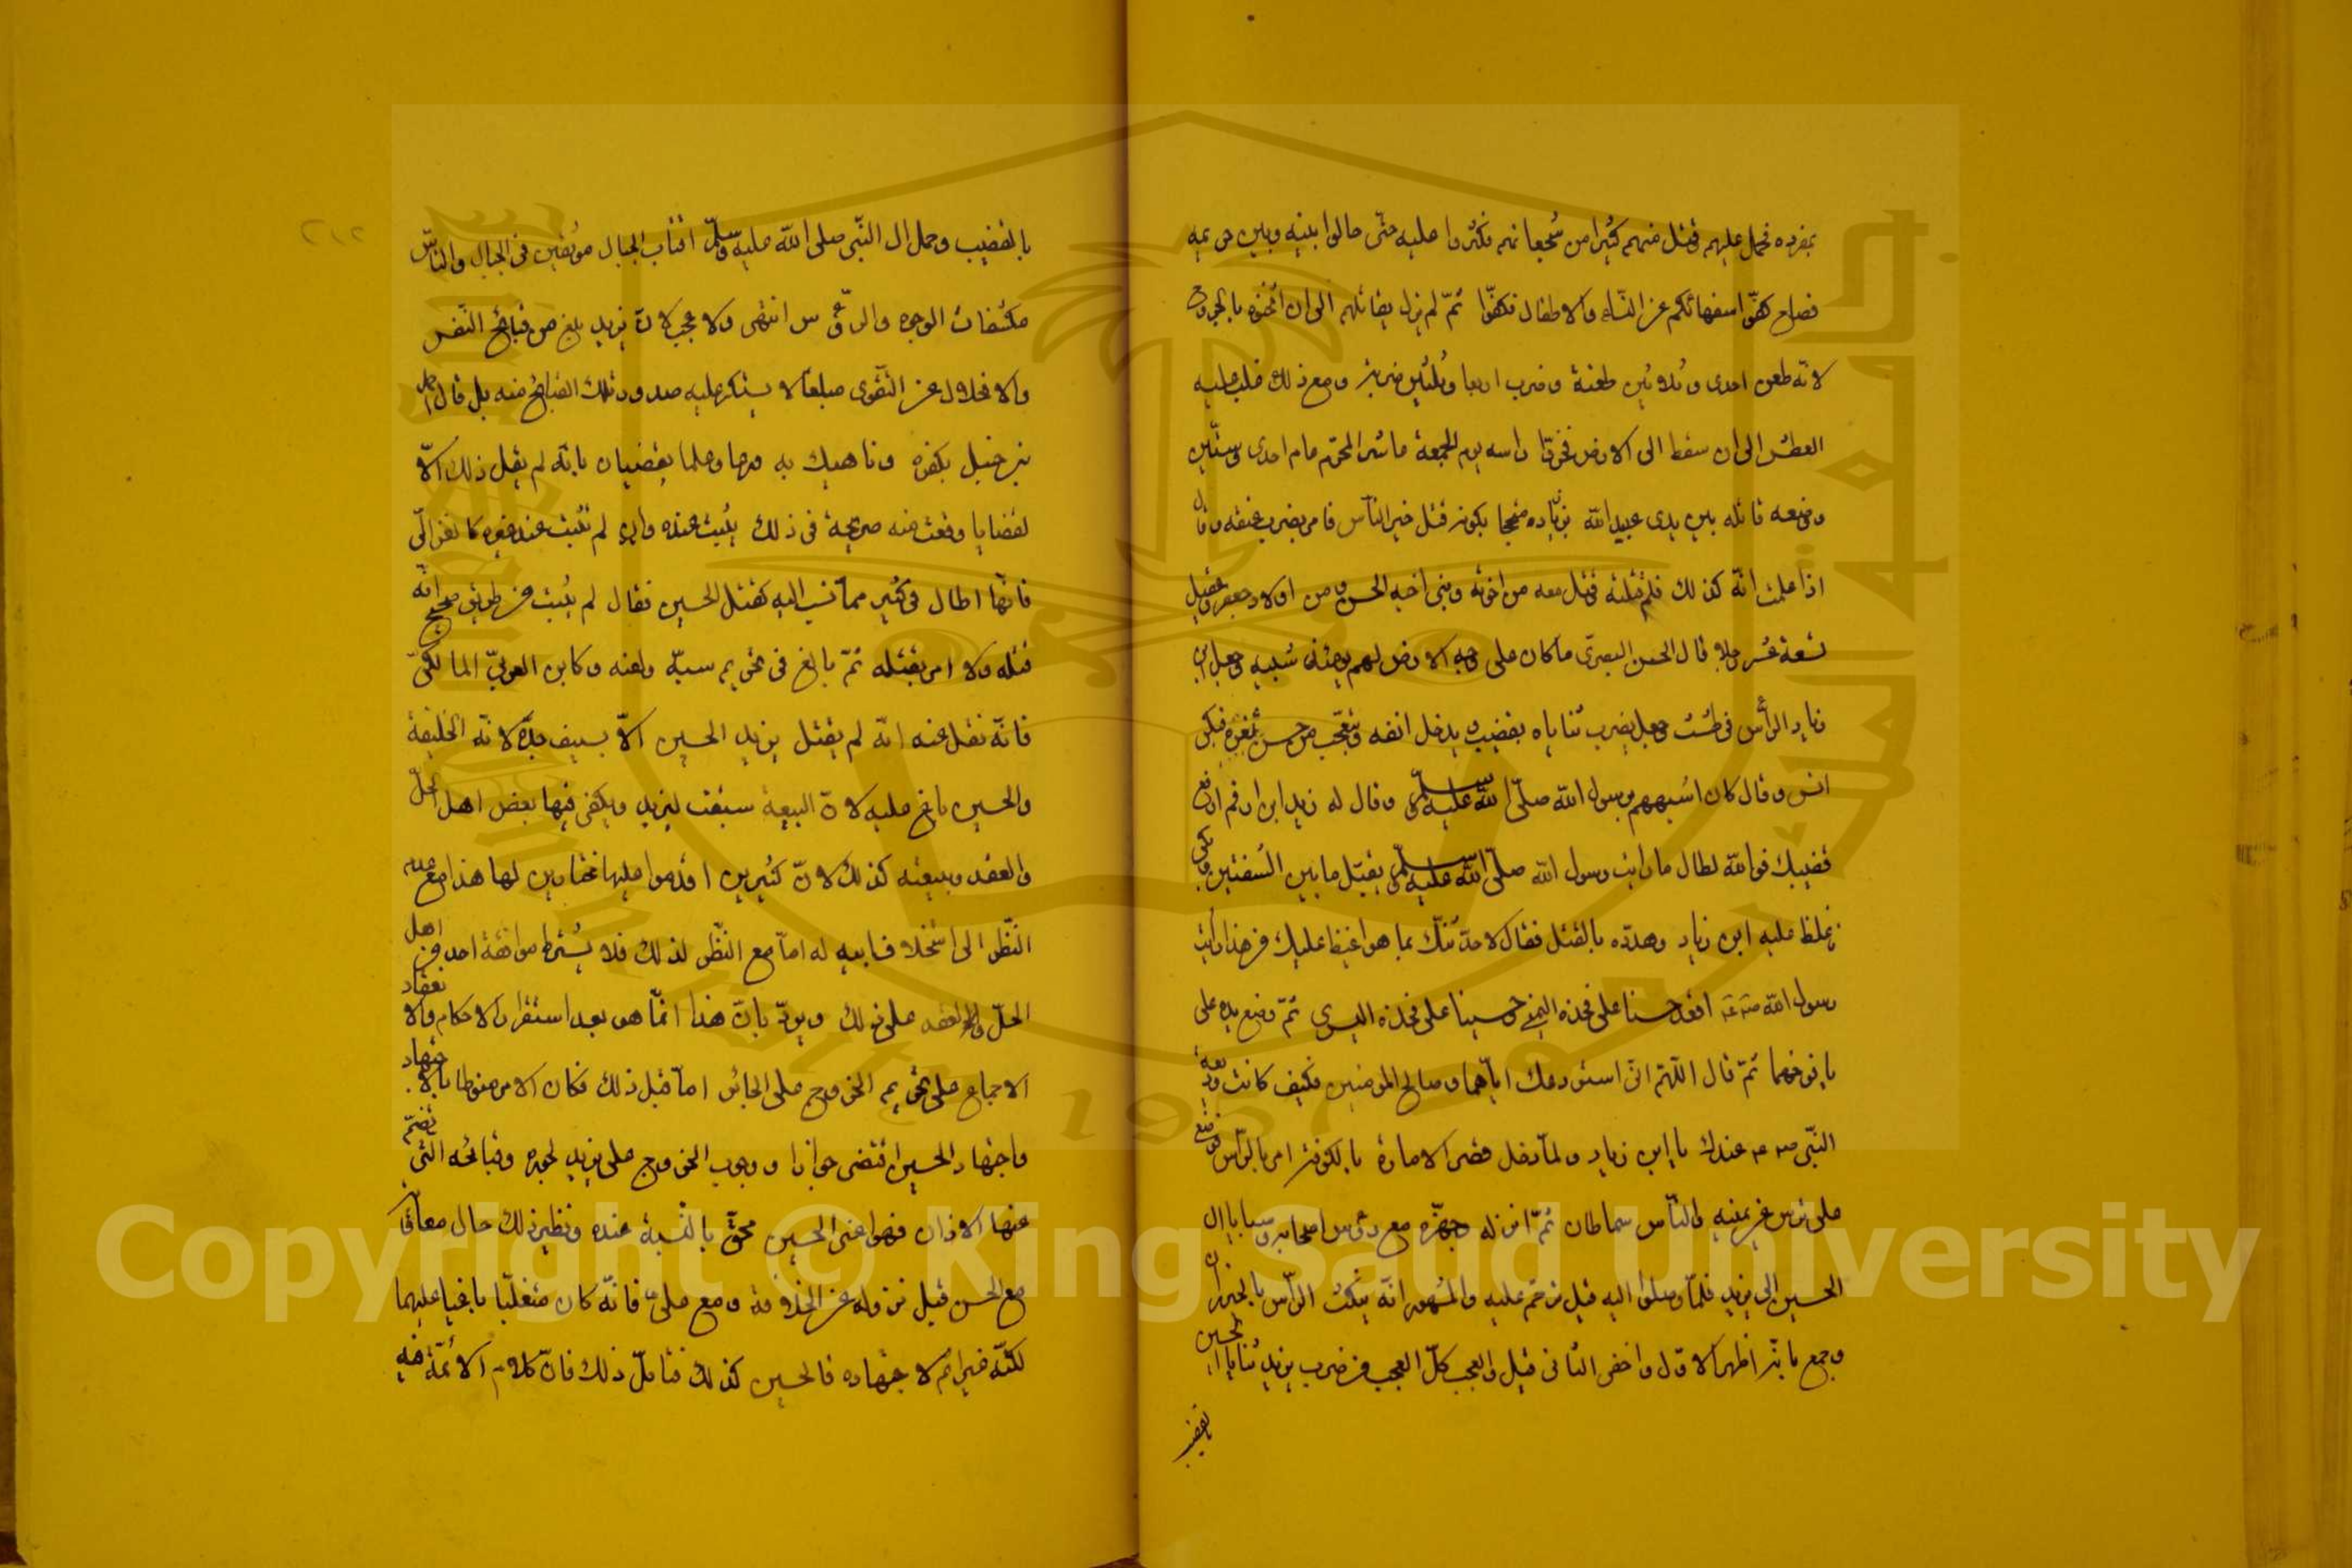 بمفرده فحمل عليهم فقتل منهم كثيرا من شجعانهم فكثروا عليه حتى حالوا بينه وبين حريمه
فصاح كفّوا سفهائكم عن النساء والاطفال فكفّوا ثمّ لم يزل يقاتلهم الى ان اثخنوه بالجروح
لانه طعن احدى وثلاثين طعنة وضرب اربعا وثلثين ضربة ومع ذلك غلب عليه
العطش الى ان سقط الى الارض فحزّوا راسه يوم الجمعة عاشر المحرّم عام احدى وستّين
ووضعه قاتله بين يدى عبيد الله بن زياده متبجحا بكونه قتل خير النّاس فامر بضرب عنقه وقال
اذا علمت انّه كذلك فلم قتلته قتل معه من اخوته وبنى اخيه الحسن ومن اولاد جعفر وعقيل
تسعة عشر رجلا قال الحسن البصرى ما كان على وجه الارض لهم يومئذ شبيه وجعل ابن
زياد الرأس فى طست وجعل يضرب ثناياه بقضيب يدخل انفه وتعجّب من حسن ثغره فبكى
انس وقال كان اشبههم برسول الله صلّى الله عليه وسلّم وقال له زيد ابن ارقم ارفع
قضيبك فوالله لطال ما رايت رسول الله صلّى الله عليه وسلّم يقبّل ما بين الشفتين وبكى
فغلظ عليه ابن زياد وهدّده بالقتل فقال لاحدّثنّك بما هو اغيظ عليك من هذا رايت
رسول الله صلعم اقعد حسنا على فخذه اليمنى وحسينا على فخذه اليسرى ثمّ وضع يده على
يافوخهما ثمّ قال اللّهمّ انّى استودعك ايّاهما وصالح المومنين فكيف كانت وديعة
النّبى صلعم عندك يا ابن زياد ولمّا دخل قصر الامارة بالكوفة امر بالرّاس فوضع
على ترس عن يمينه والنّاس سماطان ثمّ انزله وجهّزه مع رؤس اصحابه وسبايا ال
الحسين الى يزيد فلمّا وصلوا اليه قيل ترحّم عليه والمشهور انّه ينكث الرّاس بالخيزران
وجمع بانّه اظهر الاوّل واخفى الثانى قيل والعجب كلّ العجب من ضرب يزيد ثنايا الحسين
بالقضيب
بالقضيب وحمل ال النّبى صلى الله عليه وسلّم اقتاب الجبال موثقين فى الجبال والنّاس
مكشفات الوجوه والرّؤس انتهى ولا عجب لانّ يزيد بلغ من قبائح النّفس
والانحلال عن التّقوى مبلغا لا يستنكر عليه صدور تلك القبائح منه بل قال احمد
بن حنبل بكفره وناهيك به ورعا وعلما يقضيان بانّه لم يقل ذلك الّا
لقضايا وقعت منه صريحة فى ذلك يثبت عنده وان لم تثبت عند غيره كالغزالى
فانّه اطال فى كثير ممّا نسب اليه كقتل الحسين فقال لم يثبت من طريق صحيح انّه
قتله ولا امر بقتله ثمّ بالغ فى تحريم سبّه ولعنه وكابن العربىّ المالكىّ
فانّه نقل عنه انّه لم يقتل يزيد الحسين الّا بسيف جدّه لانّه الخليفة
والحسين باغ عليه لانّ البيعة سبقت ليزيد ويكفى فيها بعض اهل الحلّ
والعقد وبيعته كذلك لانّ كثيرين اقدموا عليها مختارين لها هذا مع عدم
النّظر الى استخلاف ابيه له امّا مع النّظر لذلك فلا يشترط موافقة احد من اهل
الحلّ والعقد على ذلك ويردّ بانّ هذا انّما هو بعد استقرار الاحكام وانعقاد
الاجماع على تحريم الخروج على الجائر امّا قبل ذلك فكان الامر منوطا بالاجتهاد
واجتهاد الحسين اقتضى جوازا ووجوب الخروج على يزيد لجوره وقبائحه التى تضمّ
عنها الاذان فهو اعنى الحسين محقّ بالنّسبة عنده ونظير ذلك حال معاوية
مع الحسن قبل نزوله عن الخلافة ومع علىّ فانّه كان متغلّبا باغيا عليهما
لكنّه غير اثم لاجتهاده فالحسين كذلك فتامّل ذلك فانّ كلام الائمّة فيه
Copyright © King Saud University
1957